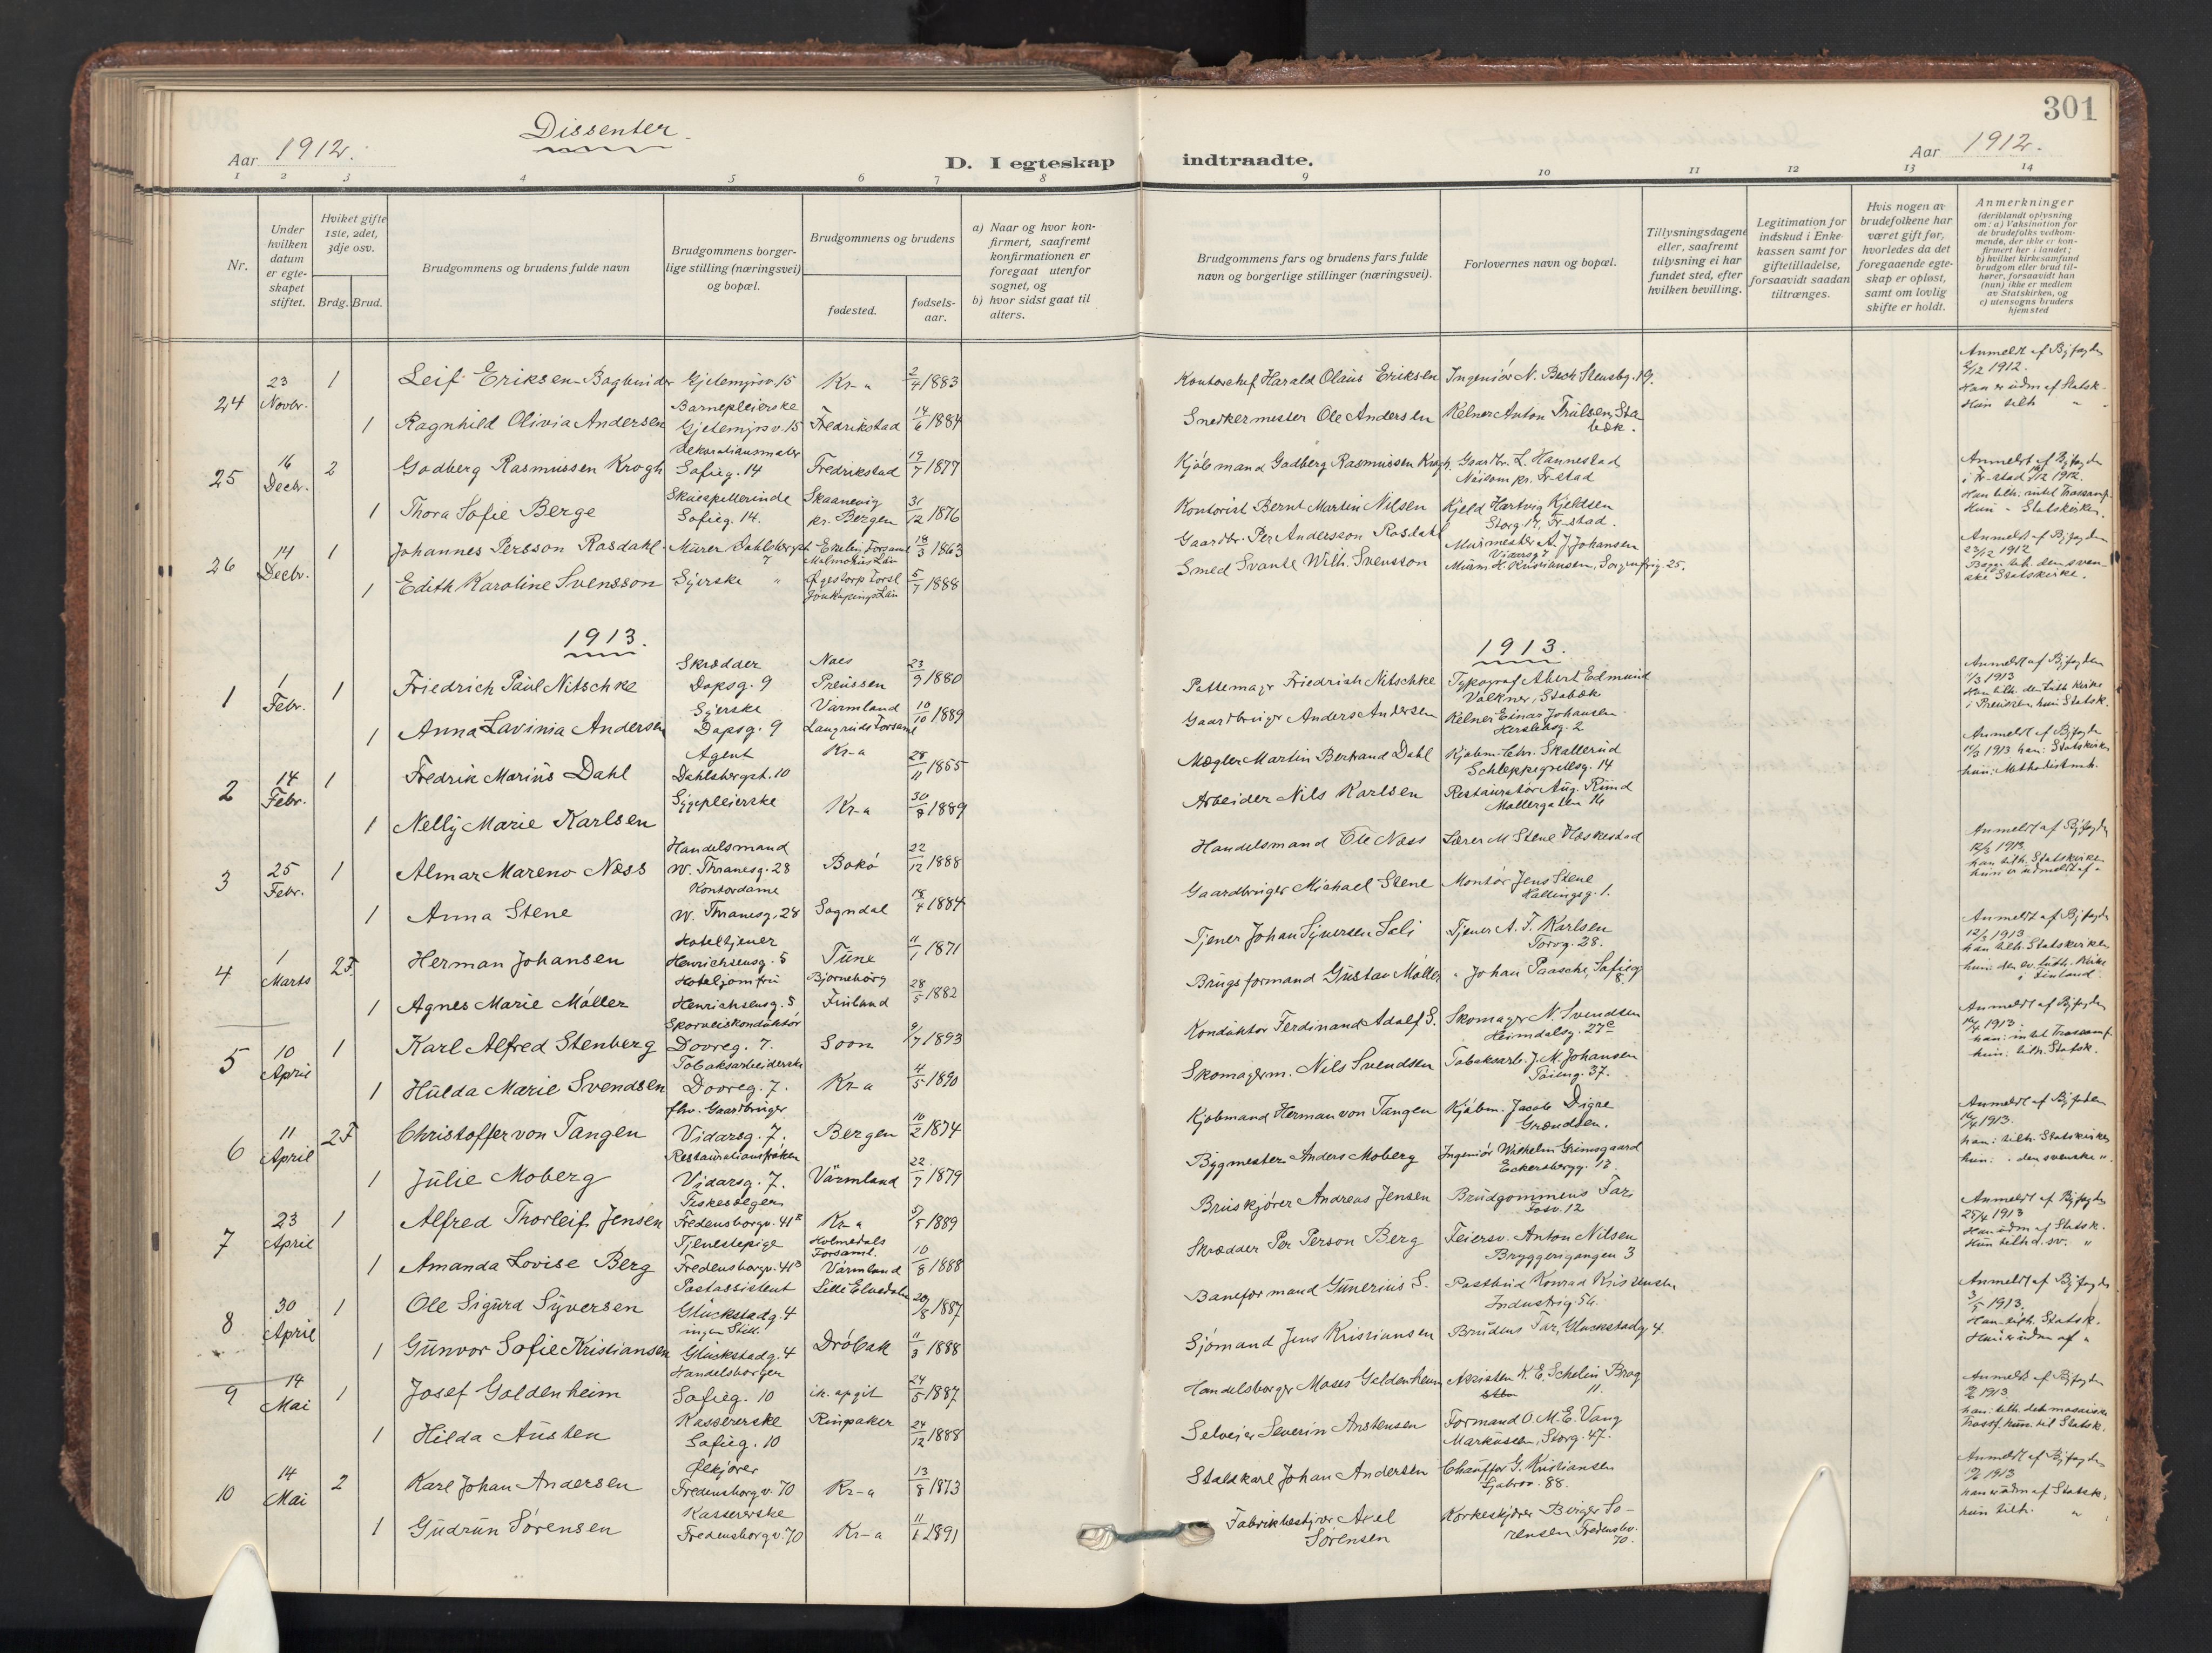 301
Dissenter
Aar 1912.
D. I egteskap indtraadte.
Aar 1912.
1 2 3 4 5 6 7 8 9 10 11 12 13 14
Nr.
Under hvilken datum er egteskapet stiftet.
Hviket gifte 1ste, 2det, 3dje osv.
Brdg. Brud.
Brudgommens og brudens fulde navn
Brudgommens borgerlige stilling (næringsvei) og bopæl.
Brudgommens og brudens
fødested.
fødselsaar.
a) Naar og hvor konfirmert, saafremt konfirmationen er foregaat utenfor sognet, og
b) hvor sidst gaat til alters.
Brudgommens fars og brudens fars fulde navn og borgerlige stillinger (næringsvei).
Forlovernes navn og bopæl.
Tillysningsdagene eller, saafremt tillysning ei har fundet sted, efter hvilken bevilling.
Legitimation for indskud i Enkekassen samt for giftetilladelse, forsaavidt saadan tiltrænges.
Hvis nogen av brudefolkene har været gift før, hvorledes da det foregaaende egteskap er opløst, samt om lovlig skifte er holdt.
Anmerkninger (deriblandt oplysning om: a) Vaksination for de brudefolks vedkommende, der ikke er konfirmert her i landet; b) hvilket kirkesamfund brudgom eller brud tilhører, forsaavidt han (hun) ikke er medlem av Statskirken, og c) utensogns bruders hjemsted
24 23 Novbr. 1 Leif Eriksen-Bogbinder Gjetemyrsv. 15 Kr-a 2/4 1883 Kontorchef Harald Olaus Eriksen Ingeniör N. Bech Stensbg. 19. Anmeldt af Byfogden 1912. Han er udm af Statsk. Hun tilh "
1 Ragnhild Olivia Andersen Barnepleierske Gjetemyrsv. 15 Fredrikstad 14/6 1884 Snedkermester Ole Andersen Kelner Anton Trulsen, Stabæk.
25 16 Decbr. 2 Godberg Rasmussen Krogh Dekorationsmaler Sofieg. 14 Fredrikstad 19/7 1877 Kjöbmand Godberg Rasmussen Krogh Gaardbr. L. Hannestad pr. Fr-stad Anmeldt af Byfogden i Fr-stad 1912. Han tilh. intet Trossamf. Hun - Statskirken.
1 Thora Sofie Berge Sofieg. 14. Skaanevig pr. Bergen 31/12 1876 Kontorist Bernt Martin Nilsen Kjeld Hartvig Kjeldsen Storg. 17, Fr-stad.
26 14 Decbr. 1 Johannes Persson Rosdahl Murer Dahlsbergst. 7 Malmöhus Län 18/3 1863 Gaardbr. Per Andersson Rosdahl Murmester A. J. Johansen Vidarsg 7 Anmeldt af Byfogden 23/12 1912 Begge tilh. den svenske Statskirke.
1 Edith Karoline Svensson Syerske " Jönköpings Län 5/7 1888 Smed Svante Wilh. Svensson Murm H. Kristiansen, Sorgenfrig. 25.
1913.
1913.
1 1 Febr. 1 Friedrich Paul Nitschke Skrædder Dopsg. 9 Naes Preussen 23/9 1880 Pottemagr Friedrich Nitschke Typograf Albert Edmund Volkner, Stabæk Anmeldt af Byfogden 1/3 1913 Han tilh. den luth Kirke i Preussen, hun Statsk.
1 Anna Lavinia Andersen Syerske Dopsg. 9 Värmland 10/10 1889 Gaardbruger Anders Andersen Kelner Einar Johansen Herslebsg. 2
2 14 Febr. 1 Fredrik Marius Dahl Agent Dahlsbergst. 10 Kr-a 28/11 1865 Mægler Martin Bertrand Dahl Kjöbm. Chr. Skallerud Schleppegrellsg. 14 Anmeldt af Byfogden 1913 han: Statskirk. hun: Methodistmk.
1 Nelly Marie Karlsen Sygepleierske Kr-a 30/8 1889 Arbeider Nils Karlsen Restauratör Aug. Rund Möllergaten 14
3 25 Febr. 1 Almar Mareno Næss Handelsmand W. Thranesg. 28 Bokö 22/12 1888 Handelsmand Ole Næss Lærer M Stene Haskestad Anmeldt af Byfogden 12/3 1913. han tilh. Statskirken hun er udmeldt af "
1 Anna Stene Kontordame W. Thranesg. 28 Sogndal 18/4 1884 Gaardbruger Michael Stene Montör Jens Stene Hallingsg. 1.
4 1 Marts 2F. Herman Johansen Hoteltjener Henrichsensg. 5 Tune 11/1 1871 Tjener Johan Syversen Sæli Tjener A. F. Karlsen Torvg. 28. Anmeldt af Byfogden 12/3 1913 han tilh. Statskirken hun: den ev. luth. Kirke i Finland
1 Agnes Marie Möller Hoteljomfru Henrichsensg. 5 Björneborg Finland 28/5 1882 Brugsformand Gustav Möller " Johan Paasche, Sofieg 8.
5 10 April 1 Karl Alfred Stenberg Sporveiskonduktör Dovreg. 7. Soon 9/7 1893 Konduktör Ferdinand Adolf S. Skomager N. Svendsen Heimdalsg. 27c Anmeldt af Byfogden 1913. han: intet Trossamf. hun: tilh. Statsk.
1 Hulda Marie Svendsen Tobaksarbeiderske Dovreg. 7. Kr-a 4/5 1890 Skomagerm. Nils Svendsen Tobaksarb. J. M. Johansen Töieng. 37.
6 11 April 2F Christoffer von Tangen fhv. Gaardbruger Vidarsg. 7. Bergen 10/2 1874 Kjöbmand Herman von Tangen Kjöbm. Jacob Digre Grændsen. Anmeldt af Byfogden 1913. han: tilh. Statskirken hun: " den svenske "
1 Julie Moberg Restaurationsfröken Vidarsg. 7. Värmland 22/7 1879 Bygmester Anders Moberg Ingeniör Wilhelm Grimsgaard Eckersbergg. 13
7 23 April 1 Alfred Thorleif Jensen Fredensborgv. 41B Kr-a 9/5 1889 Bruskjörer Andreas Jensen Brudgommens Far, Fosv. 12 Anmeldt af Byfogden 25/4 1913 Han udm af Statsk. Hun tilh d. sv. "
1 Amanda Lovise Berg Tjenestepige Fredensborgv. 41B Holmedals Forsaml. Värmland 10/8 1888 Skrædder Per Person Berg Feiersv. Anton Nilsen Bryggerigangen 3
8 30 April 1 Ole Sigurd Syversen Postassistent Glückstadg. 4 Lille Elvedalen 20/8 1887 Baneformand Gunerius S. Postbud Konrad Kristensen Industrig. 56. Anmeldt af Byfogden 3/5 1913. Han tilh. Statsk. Hun er udm af "
1 Gunvor Sofie Kristiansen ingen Still. Glückstadg. 4 Dröbak 11/3 1888 Sjömand Jens Kristiansen Brudens Far, Glückstadg 4.
9 14 Mai 1 Josef Goldenheim Handelsborger Sofieg. 10 ik. opgit 24/5 1887 Handelsborger Moses Goldenheim Assisten K. E. Schelin Prog 11. Anmeldt af Byfogden 1913. han: tilh. det mosaiske Trossf. hun: til Statsk.
1 Hilda Austen Kassererske Sofieg. 10 Ringsaker 24/12 1888 Selveier Severin Anstensen Formand O. M. E. Vang Markussen, Storg. 47.
10 14 Mai 2 Karl Johan Andersen Ölkjörer Fredensborgv. 70 Kr-a 13/8 1873 Staldkarl Johan Andersen Chaufför G. Kristiansen Ljabrov. 88. Anmeldt af Byfogden 1913 han er udm af Statsk. hun tilh. "
1 Gudrun Sörensen Kassererske Fredensborgv. 70 Kr-a 11/6 1891 Fabrikbestyrer Axel Sörensen Korkeskjörer Birger Sörensen Fredensbv. 70.